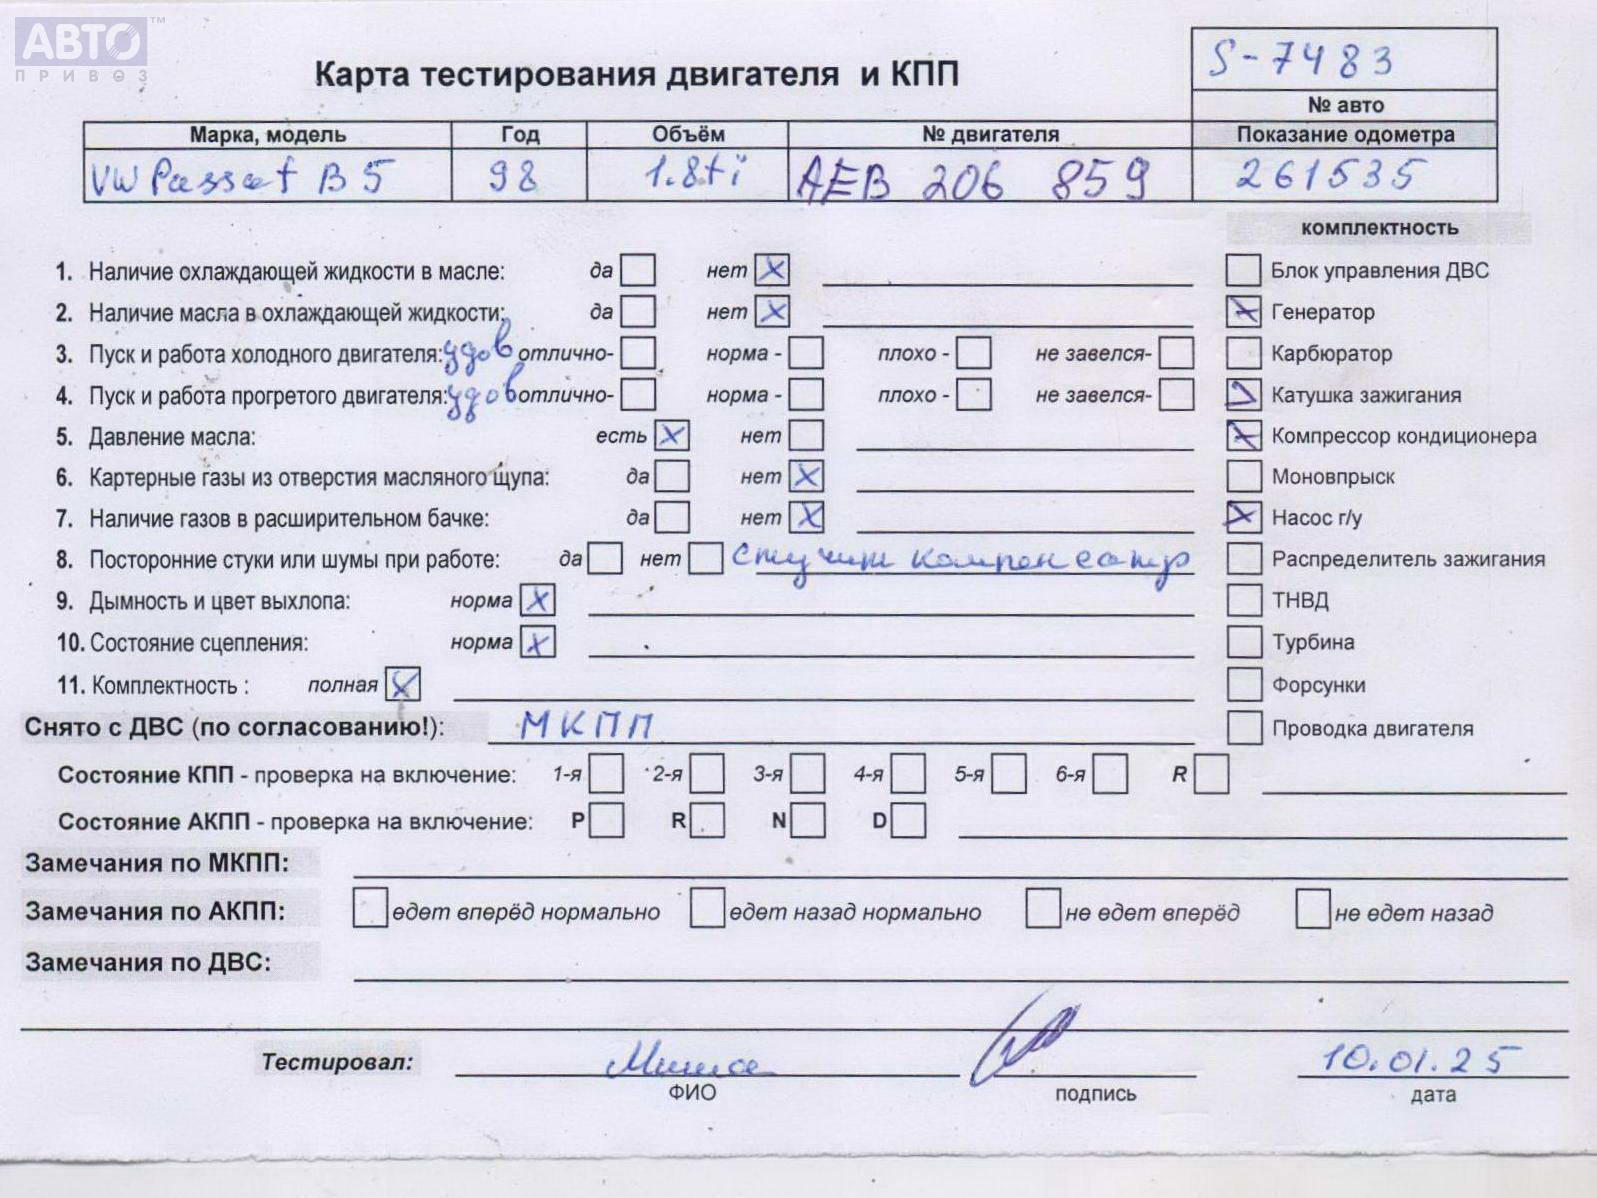 АВТО™
ПРИВОЗ
S-7483
Карта тестирования двигателя и КПП
№ авто
Марка, модель Год Объём № двигателя Показание одометра
VW Passat B5 98 1.8ti AEB 206 859 261535
комплектность
1. Наличие охлаждающей жидкости в масле: да нет X Блок управления ДВС
2. Наличие масла в охлаждающей жидкости: да нет X Генератор
3. Пуск и работа холодного двигателя: удов отлично- норма - плохо - не завелся- Карбюратор
4. Пуск и работа прогретого двигателя: удов отлично- норма - плохо - не завелся- Катушка зажигания
5. Давление масла: есть X нет Компрессор кондиционера
6. Картерные газы из отверстия масляного щупа: да нет X Моновпрыск
7. Наличие газов в расширительном бачке: да нет X Насос г/у
8. Посторонние стуки или шумы при работе: да нет стучит компенсатр Распределитель зажигания
9. Дымность и цвет выхлопа: норма X ТНВД
10. Состояние сцепления: норма X Турбина
11. Комплектность : полная X Форсунки
Снято с ДВС (по согласованию!): МКПП Проводка двигателя
Состояние КПП - проверка на включение: 1-я 2-я 3-я 4-я 5-я 6-я R
Состояние АКПП - проверка на включение: P R N D
Замечания по МКПП:
Замечания по АКПП: едет вперёд нормально едет назад нормально не едет вперёд не едет назад
Замечания по ДВС:
Тестировал: 10.01.25
ФИО подпись дата